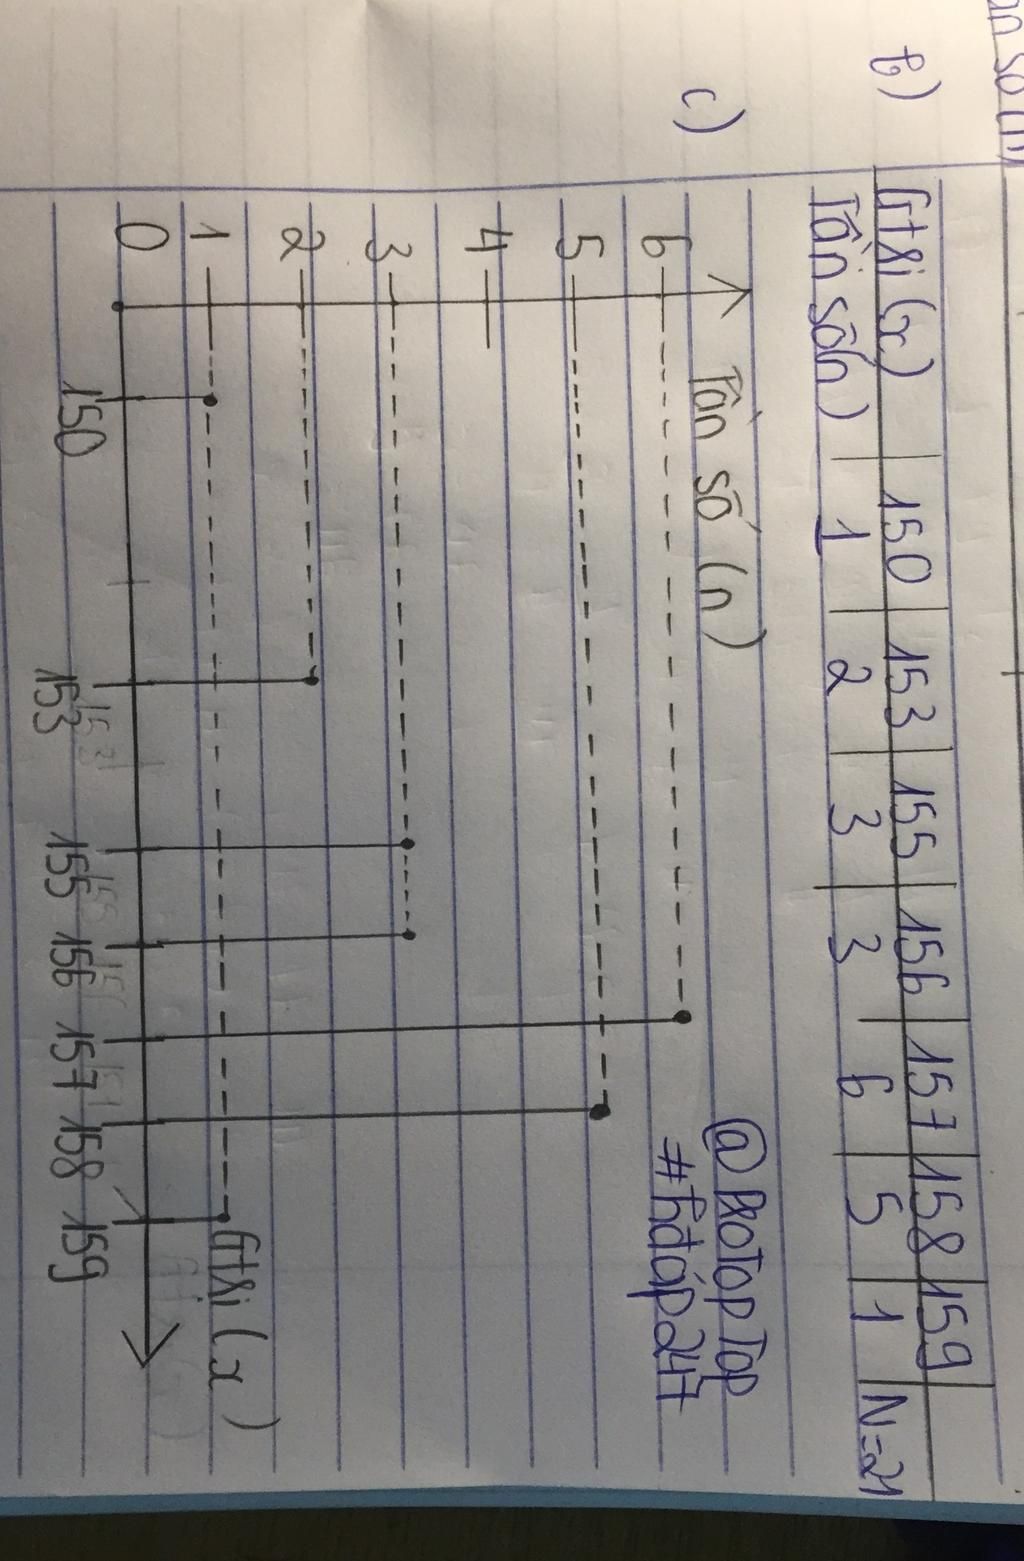 b)
Gtrị (x) 150 153 155 156 157 158 159
Tần số(n) 1 2 3 3 6 5 1 N=21
c)
Tần số (n)
6
5
4
3
2
1
0
150 153 155 156 157 158 159
Gtrị (x)
#hđáp247